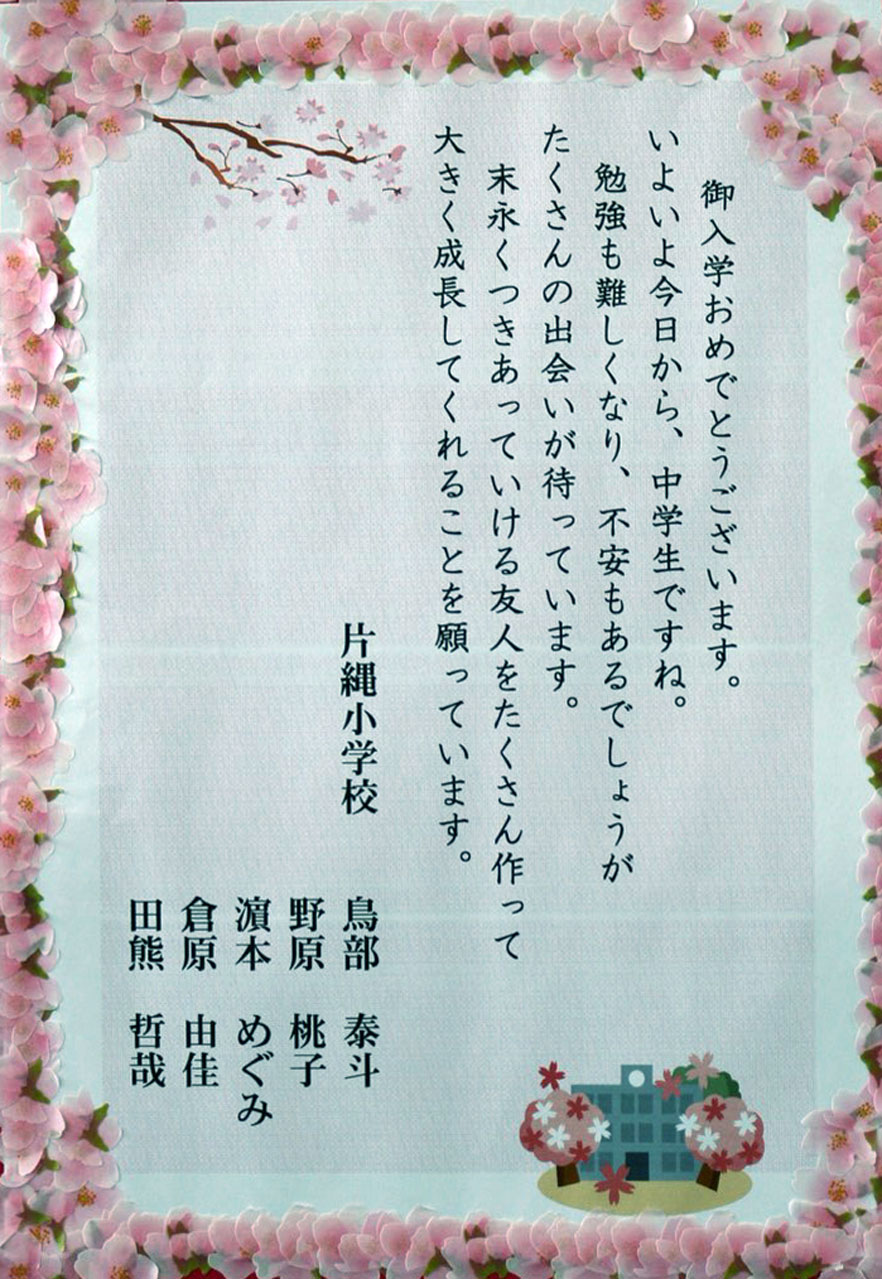 御入学おめでとうございます。
いよいよ今日から、中学生ですね。
勉強も難しくなり、不安もあるでしょうが
たくさんの出会いが待っています。
末永くつきあっていける友人をたくさん作って
大きく成長してくれることを願っています。
片縄小学校
鳥部 泰斗
野原 桃子
濵本 めぐみ
倉原 由佳
田熊 哲哉